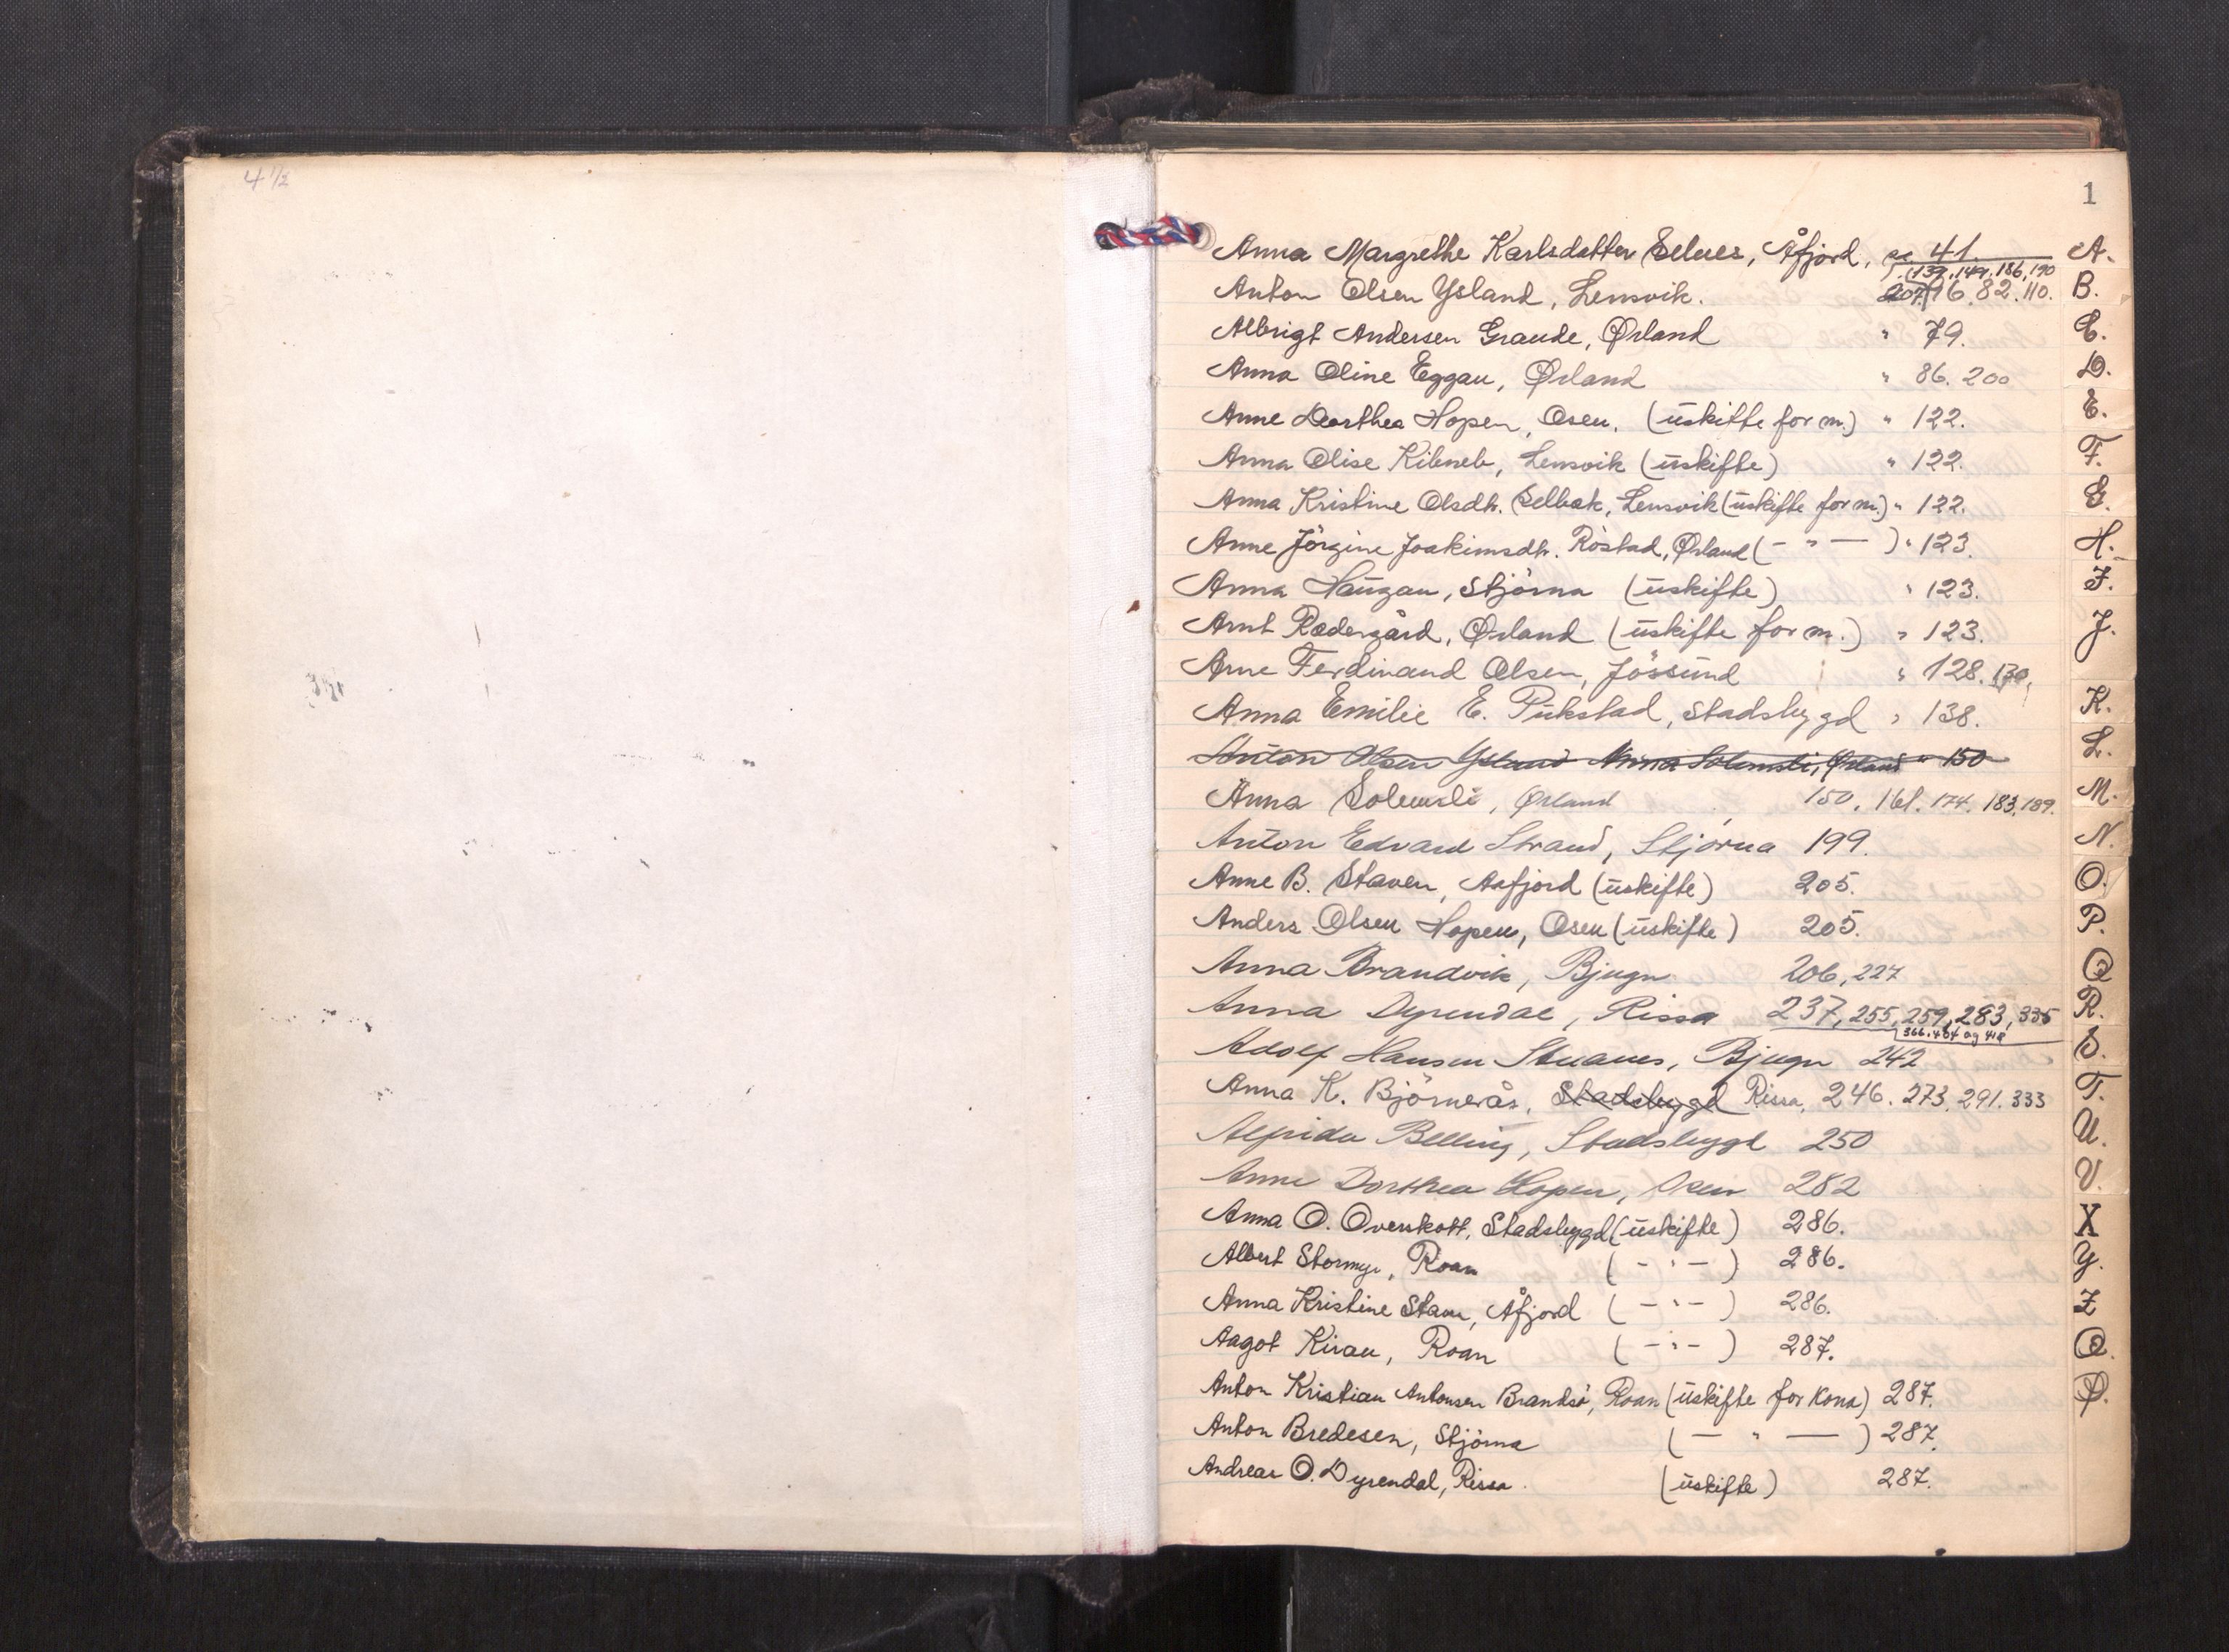 4 1/2
1
Anna Margrethe Karlsdatter Selnes, Åfjord, 41.
139, 149, 186, 190
Anton Olsen Ysland, Lensvik. 207, 76, 82. 110.
Albrigt Andersen Grande, Ørland " 79.
Anna Oline Eggan, Ørland " 86. 200
Anne Dorthea Hopen, Osen. (uskifte for m.) " 122.
Anna Olise Lensvik (uskifte) " 122.
Anna Kristine Olsdtr. Selbæk, Lensvik (uskifte for m.) " 122.
Anne Jörgine Joakimsdtr. Röstad, Ørland ( - " - ) " 123.
Anna Haugan, Stjörna (uskifte) " 123.
Arnt Rædergård, Ørland (uskifte for m.) " 123.
Arne Ferdinand Olsen, Jössund " 128. 130.
Anna Emilie E. Pukstad, Stadsbygd " 138.
Anton Olsen Ysland Anna Solemsli, Ørland " 150
Anna Solemsli, Ørland 150. 161. 174. 183, 189.
Anton Edvard Strand, Stjørna 199.
Anne B. Staven, Aafjord (uskifte) 205.
Anders Olsen Hopen, Osen (uskifte) 205.
Anna Brandvik, Bjugn 206, 227
Anna Dyrendal, Rissa 237, 255, 259, 283, 335
366. 404 og 418
Adolf Hansen Stuanes, Bjugn 242
Anna K. Björnerås, Stadsbygd Rissa, 246. 273, 291. 333
Alfrida Belling, Stadsbygd 250
Anne Dorthea Hopen, Osen 282
Anna O. Overskott, Stadsbygd (uskifte) 286.
Albert Stormyr, Roan ( - " - ) 286.
Anna Kristine Staven, Åfjord ( - " - ) 286.
Aagot Kiran, Roan ( - " - ) 287.
Anton Kristian Antonsen Brandsö, Roan (uskifte for kona) 287.
Anton Bredesen, Stjörna ( - " - ) 287.
Andreas O. Dyrendal, Rissa. (uskifte) 287.
A.
B.
C.
D.
E.
F.
G.
H.
I.
J.
K.
L.
M.
N.
O.
P.
Q
R.
S.
T.
U.
V.
X
Y.
Z
Ø.